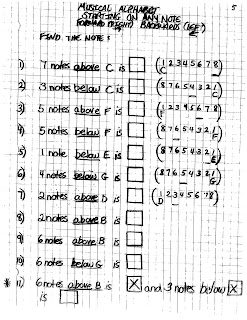 MUSICAL ALPHABET 5
STARTING ON ANY NOTE
FORWARD (RIGHT) BACKWARDS (LEFT)
FIND THE NOTES
1) 7 notes above C is (1 2 3 4 5 6 7 8)
C
2) 3 notes below C is (8 7 6 5 4 3 2 1)
C
3) 5 notes above F is (1 2 3 4 5 6 7 8)
F
4) 5 notes below F is (8 7 6 5 4 3 2 1)
F
5) 1 note below E is (8 7 6 5 4 3 2 1)
E
6) 4 notes below G is (8 7 6 5 4 3 2 1)
G
7) 2 notes above D is (1 2 3 4 5 6 7 8)
D
8) 2 notes above B is
9) 6 notes above B is
10) 6 notes below G is
* 11) 6 notes above B is X and 3 notes below X
is